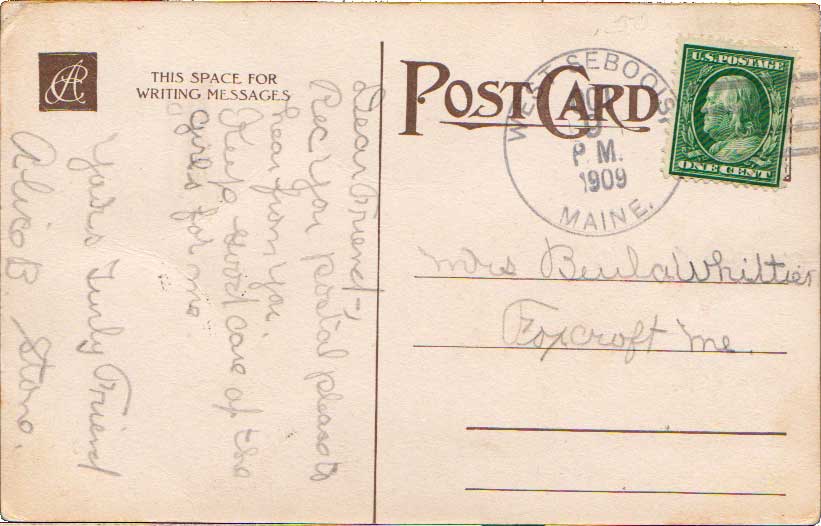 THIS SPACE FOR
WRITING MESSAGES
POST CARD
WEST SEBOOIS
P.M.
1909
MAINE.
U.S. POSTAGE
ONE CENT
Dear Friend-
Rec you postal pleas to
hear from you.
Keep good care of the
girls for me.
Yours Turly Friend
Alice B. Stone.
Mrs Beula Whittier
Foxcroft Me.